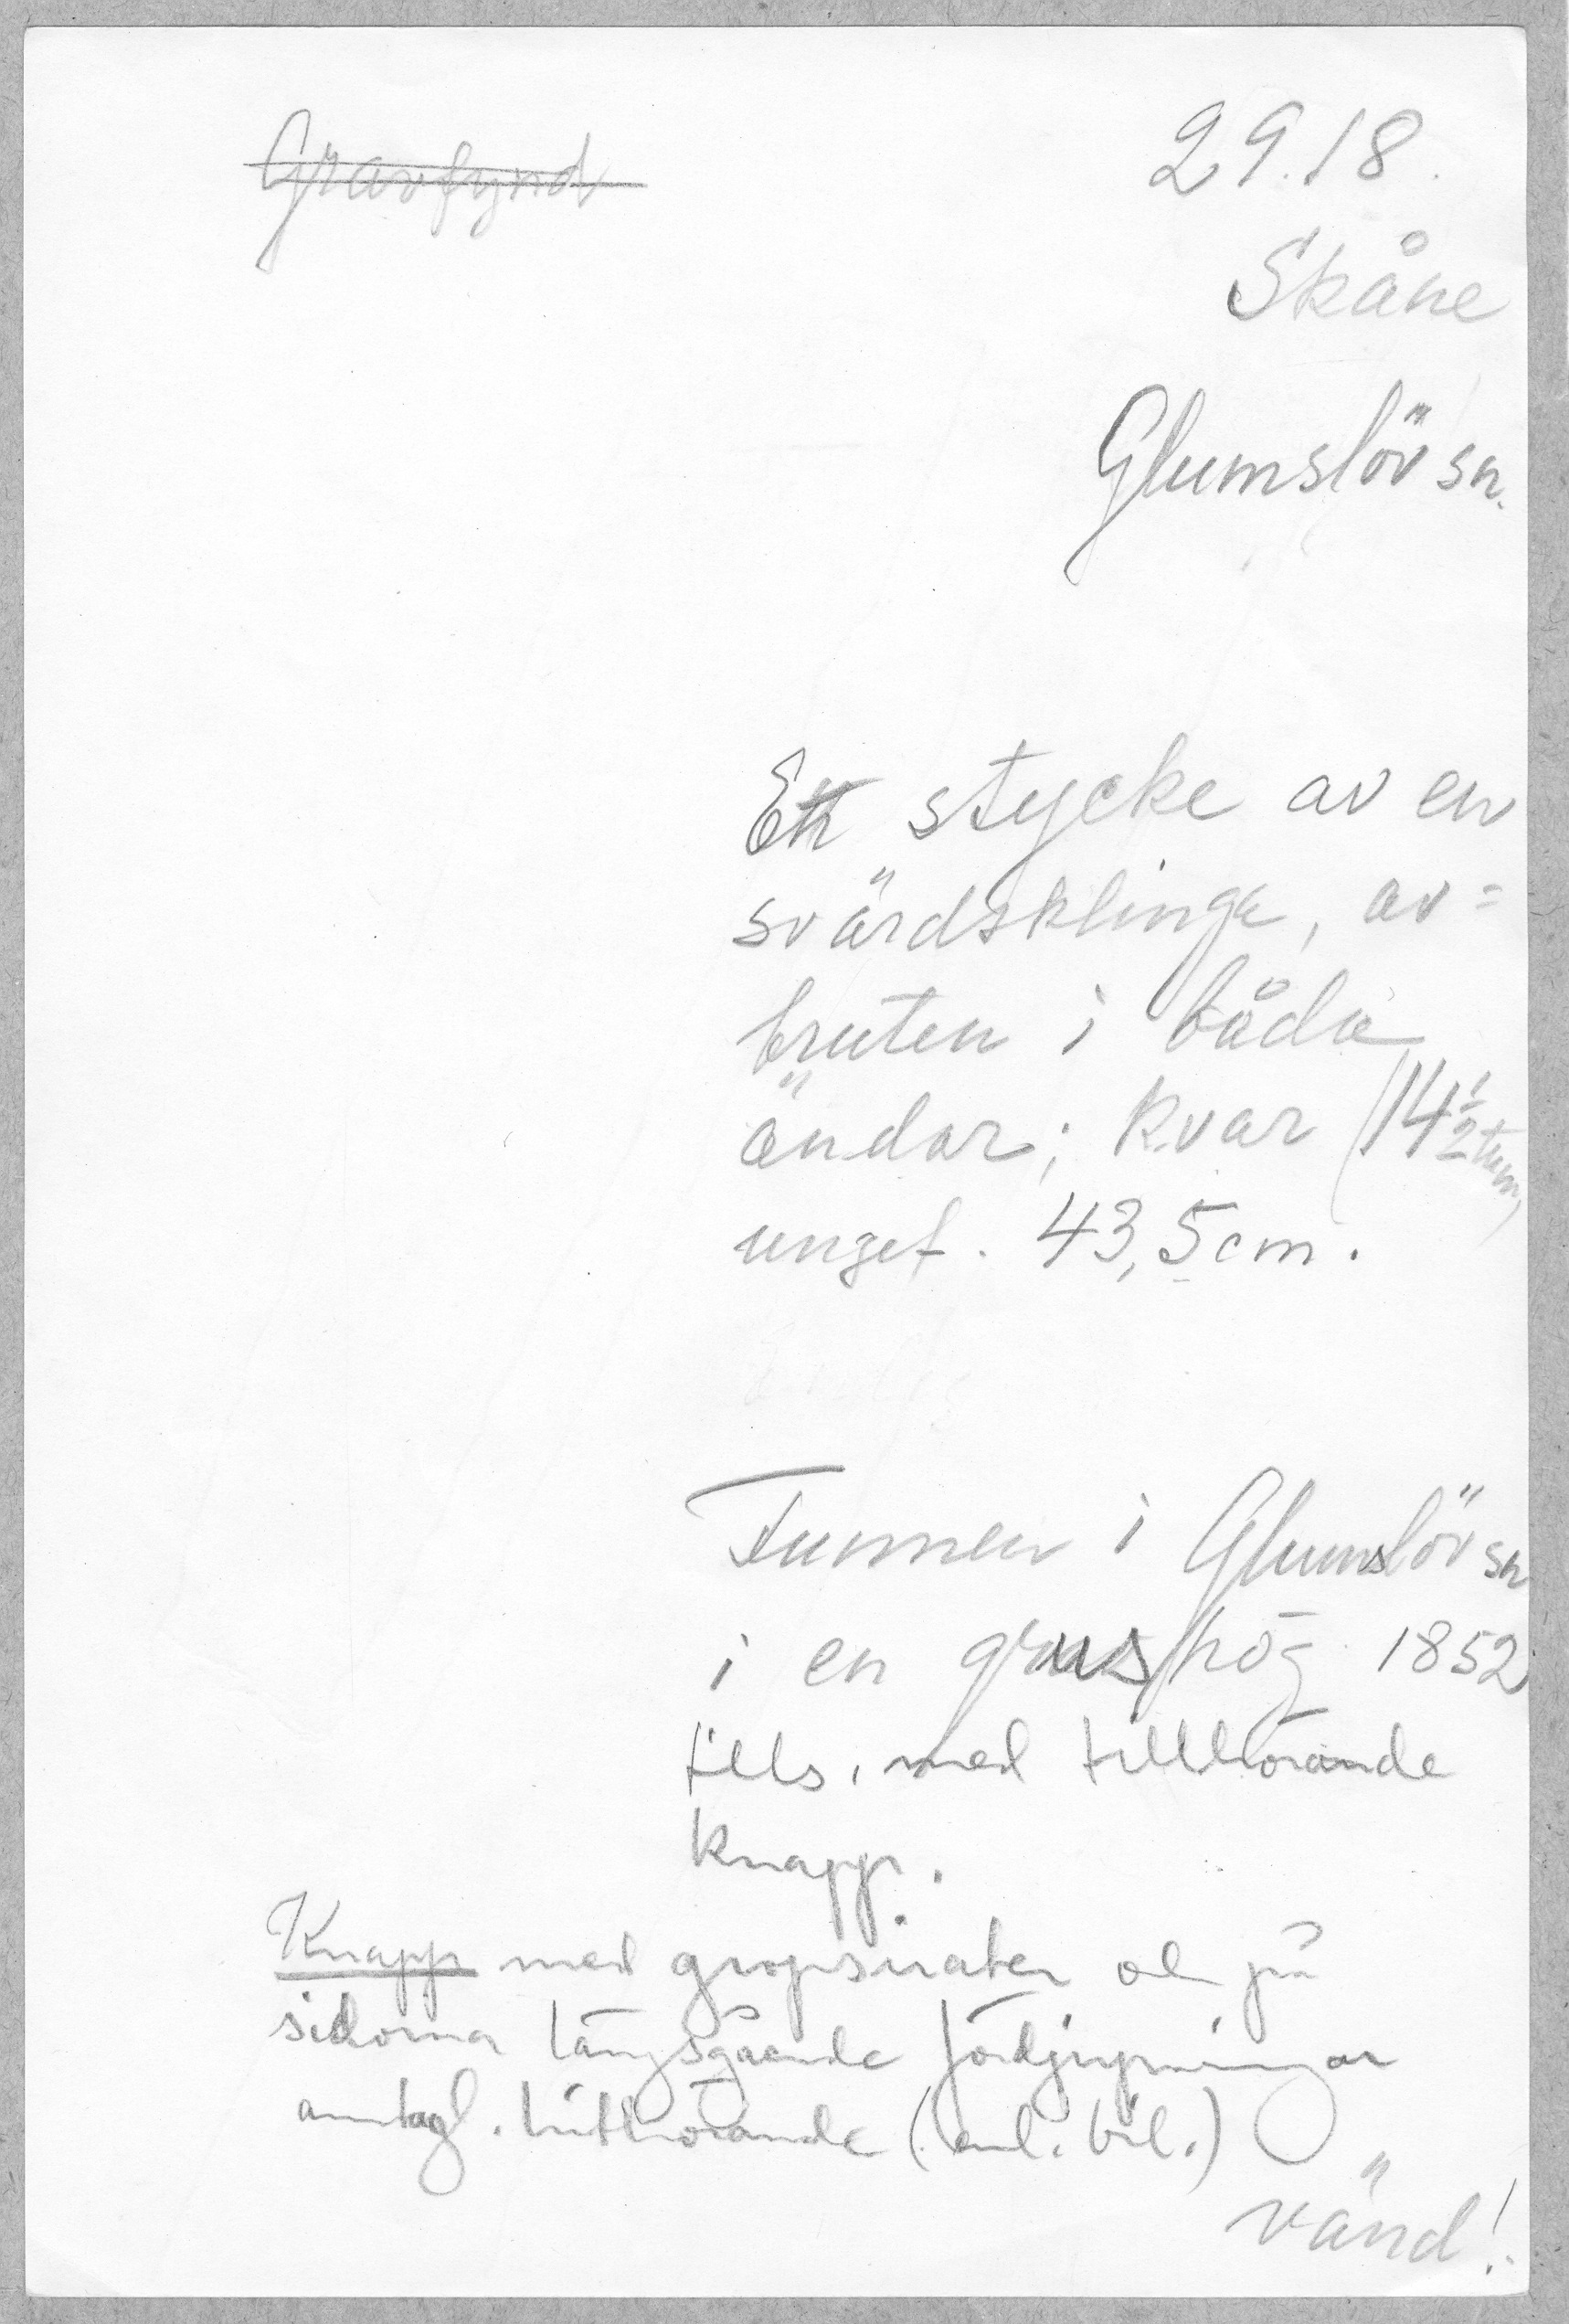 Gravfynd
2918.
Skåne
Glumslöv sn.
Ett stycke av en
svärdsklinga, av=
bruten i båda
ändar; kvar (14 1/2 tum)
ungef. 43,5 cm.
Funnen i Glumslöv sn
i en grushög 1852
tills. med tillhörande
knapp.
Knapp med gropsirater och på
sidorna långsgående fördjupningar
antagl. hithörande (enl. bil.)
vänd!